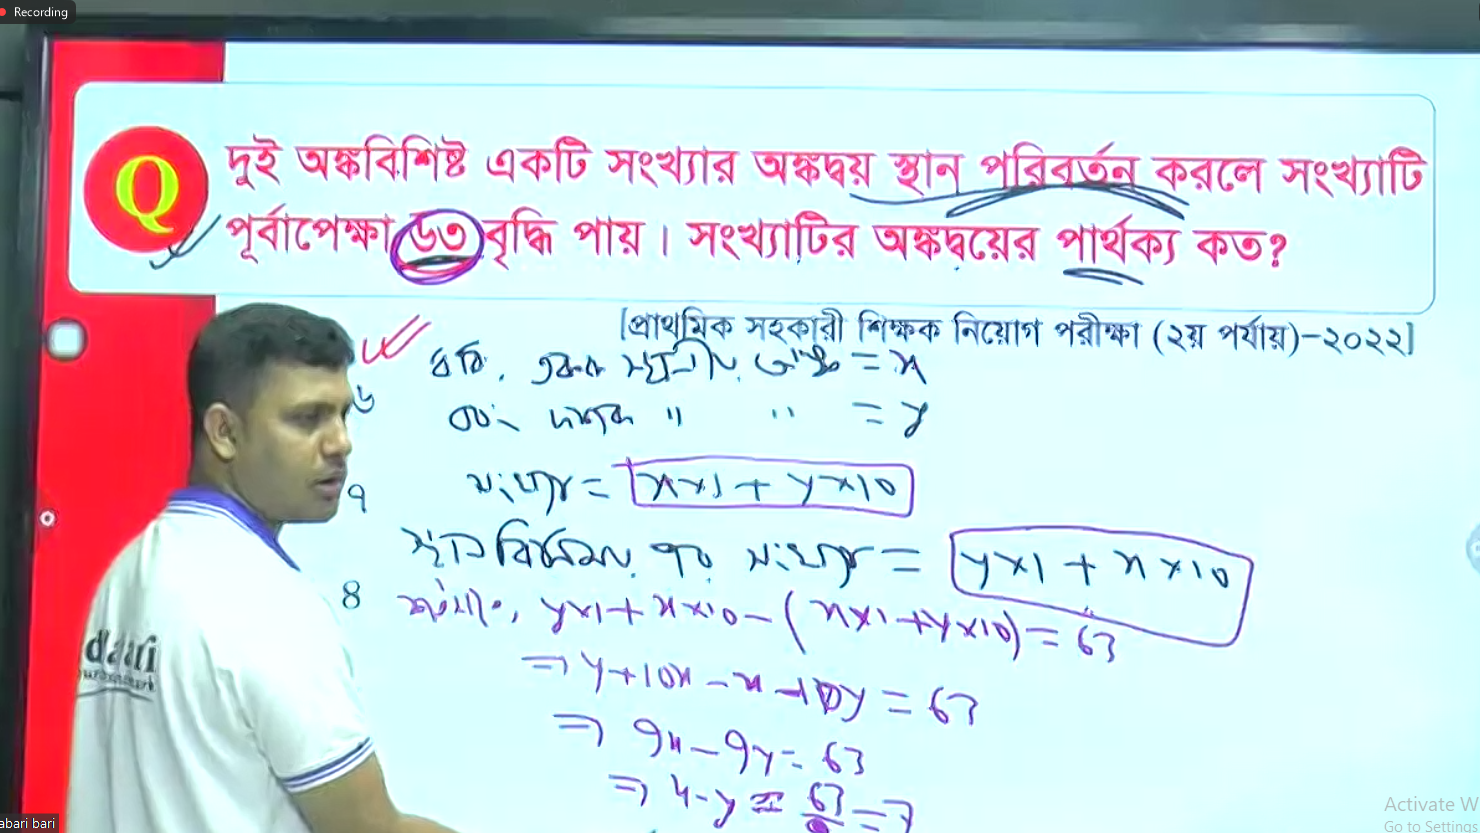 Recording
Q
দুই অঙ্কবিশিষ্ট একটি সংখ্যার অঙ্কদ্বয় স্থান পরিবর্তন করলে সংখ্যাটি
পূর্বাপেক্ষা ৬৩ বৃদ্ধি পায়। সংখ্যাটির অঙ্কদ্বয়ের পার্থক্য কত?
[প্রাথমিক সহকারী শিক্ষক নিয়োগ পরীক্ষা (২য় পর্যায়)-২০২২]
৬ ধরি, একক স্থানীয় অঙ্ক = x
এবং দশক " " = y
৭ সংখ্যা = x×1 + y×10
স্থান বিনিময়ের পর সংখ্যা = y×1 + x×10
৪ শর্তমতে, y×1+x×10-(x×1+y×10) = 63
⇒ y+10x-x-10y = 63
⇒ 9x-9y = 63
⇒ x-y = 63/9 = 7
abari bari
Activate W
Go to Settings